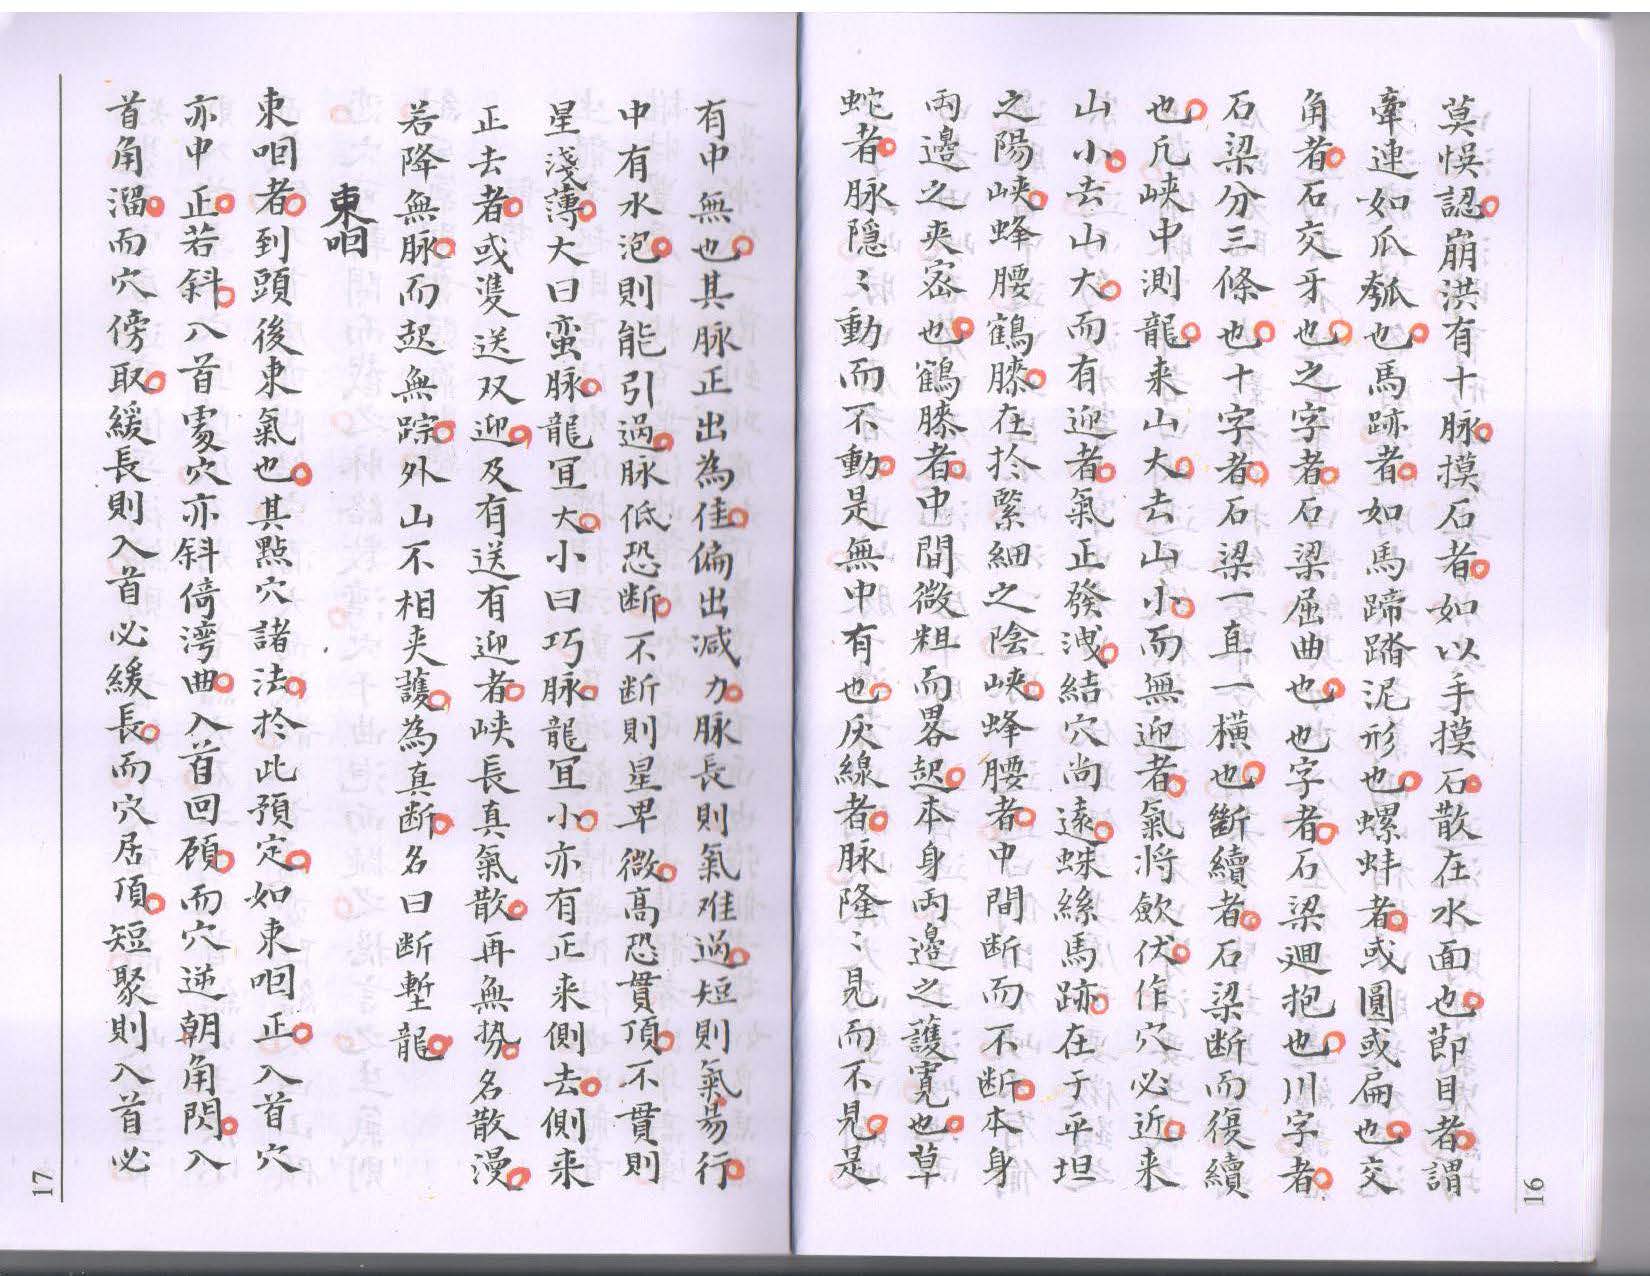 莫悞認崩洪有十脉摸石者如以手摸石散在水面也節目者謂
牽連如瓜瓠也馬跡者如馬蹄踏泥形也螺蚌者或圓或扁也交
角者石交牙也之字者石梁屈曲也也字者石梁廻抱也川字者
石梁分三條也十字者石梁一直一横也斷續者石梁断而復續
也凢峡中測龍来山大去山小而無迎者氣将歛伏作穴必近来
山小去山大而有迎者氣正發洩結穴尚遠蛛絲馬跡在于平坦
之陽峡蜂腰鶴膝在扵緊細之陰峡蜂腰者中間断而不断本身
両邊之夾宻也鶴膝者中間微粗而畧起本身両邊之護寛也草
蛇者脉隠〻動而不動是無中有也灰線者脉隆〻見而不見是
16
有中無也其脉正出為佳偏出减力脉長則氣难過短則氣昜行
中有水泡則能引過脉低恐断不断則星卑微髙恐貫頂不貫則
星淺薄大曰蛮脉龍冝大小曰巧脉龍冝小亦有正来側去側来
正去者或雙送双迎及有送有迎者峡長真氣散再無势名散漫
若降無脉而起無踪外山不相夹護為真断名曰断塹龍
束咽
束咽者到頭後束氣也其點穴諸法扵此預定如束咽正入首穴
亦中正若斜入首䖏穴亦斜倚湾曲入首回顧而穴逆朝角閃入
首角溜而穴傍取緩長則入首必緩長而穴居頂短聚則入首必
17